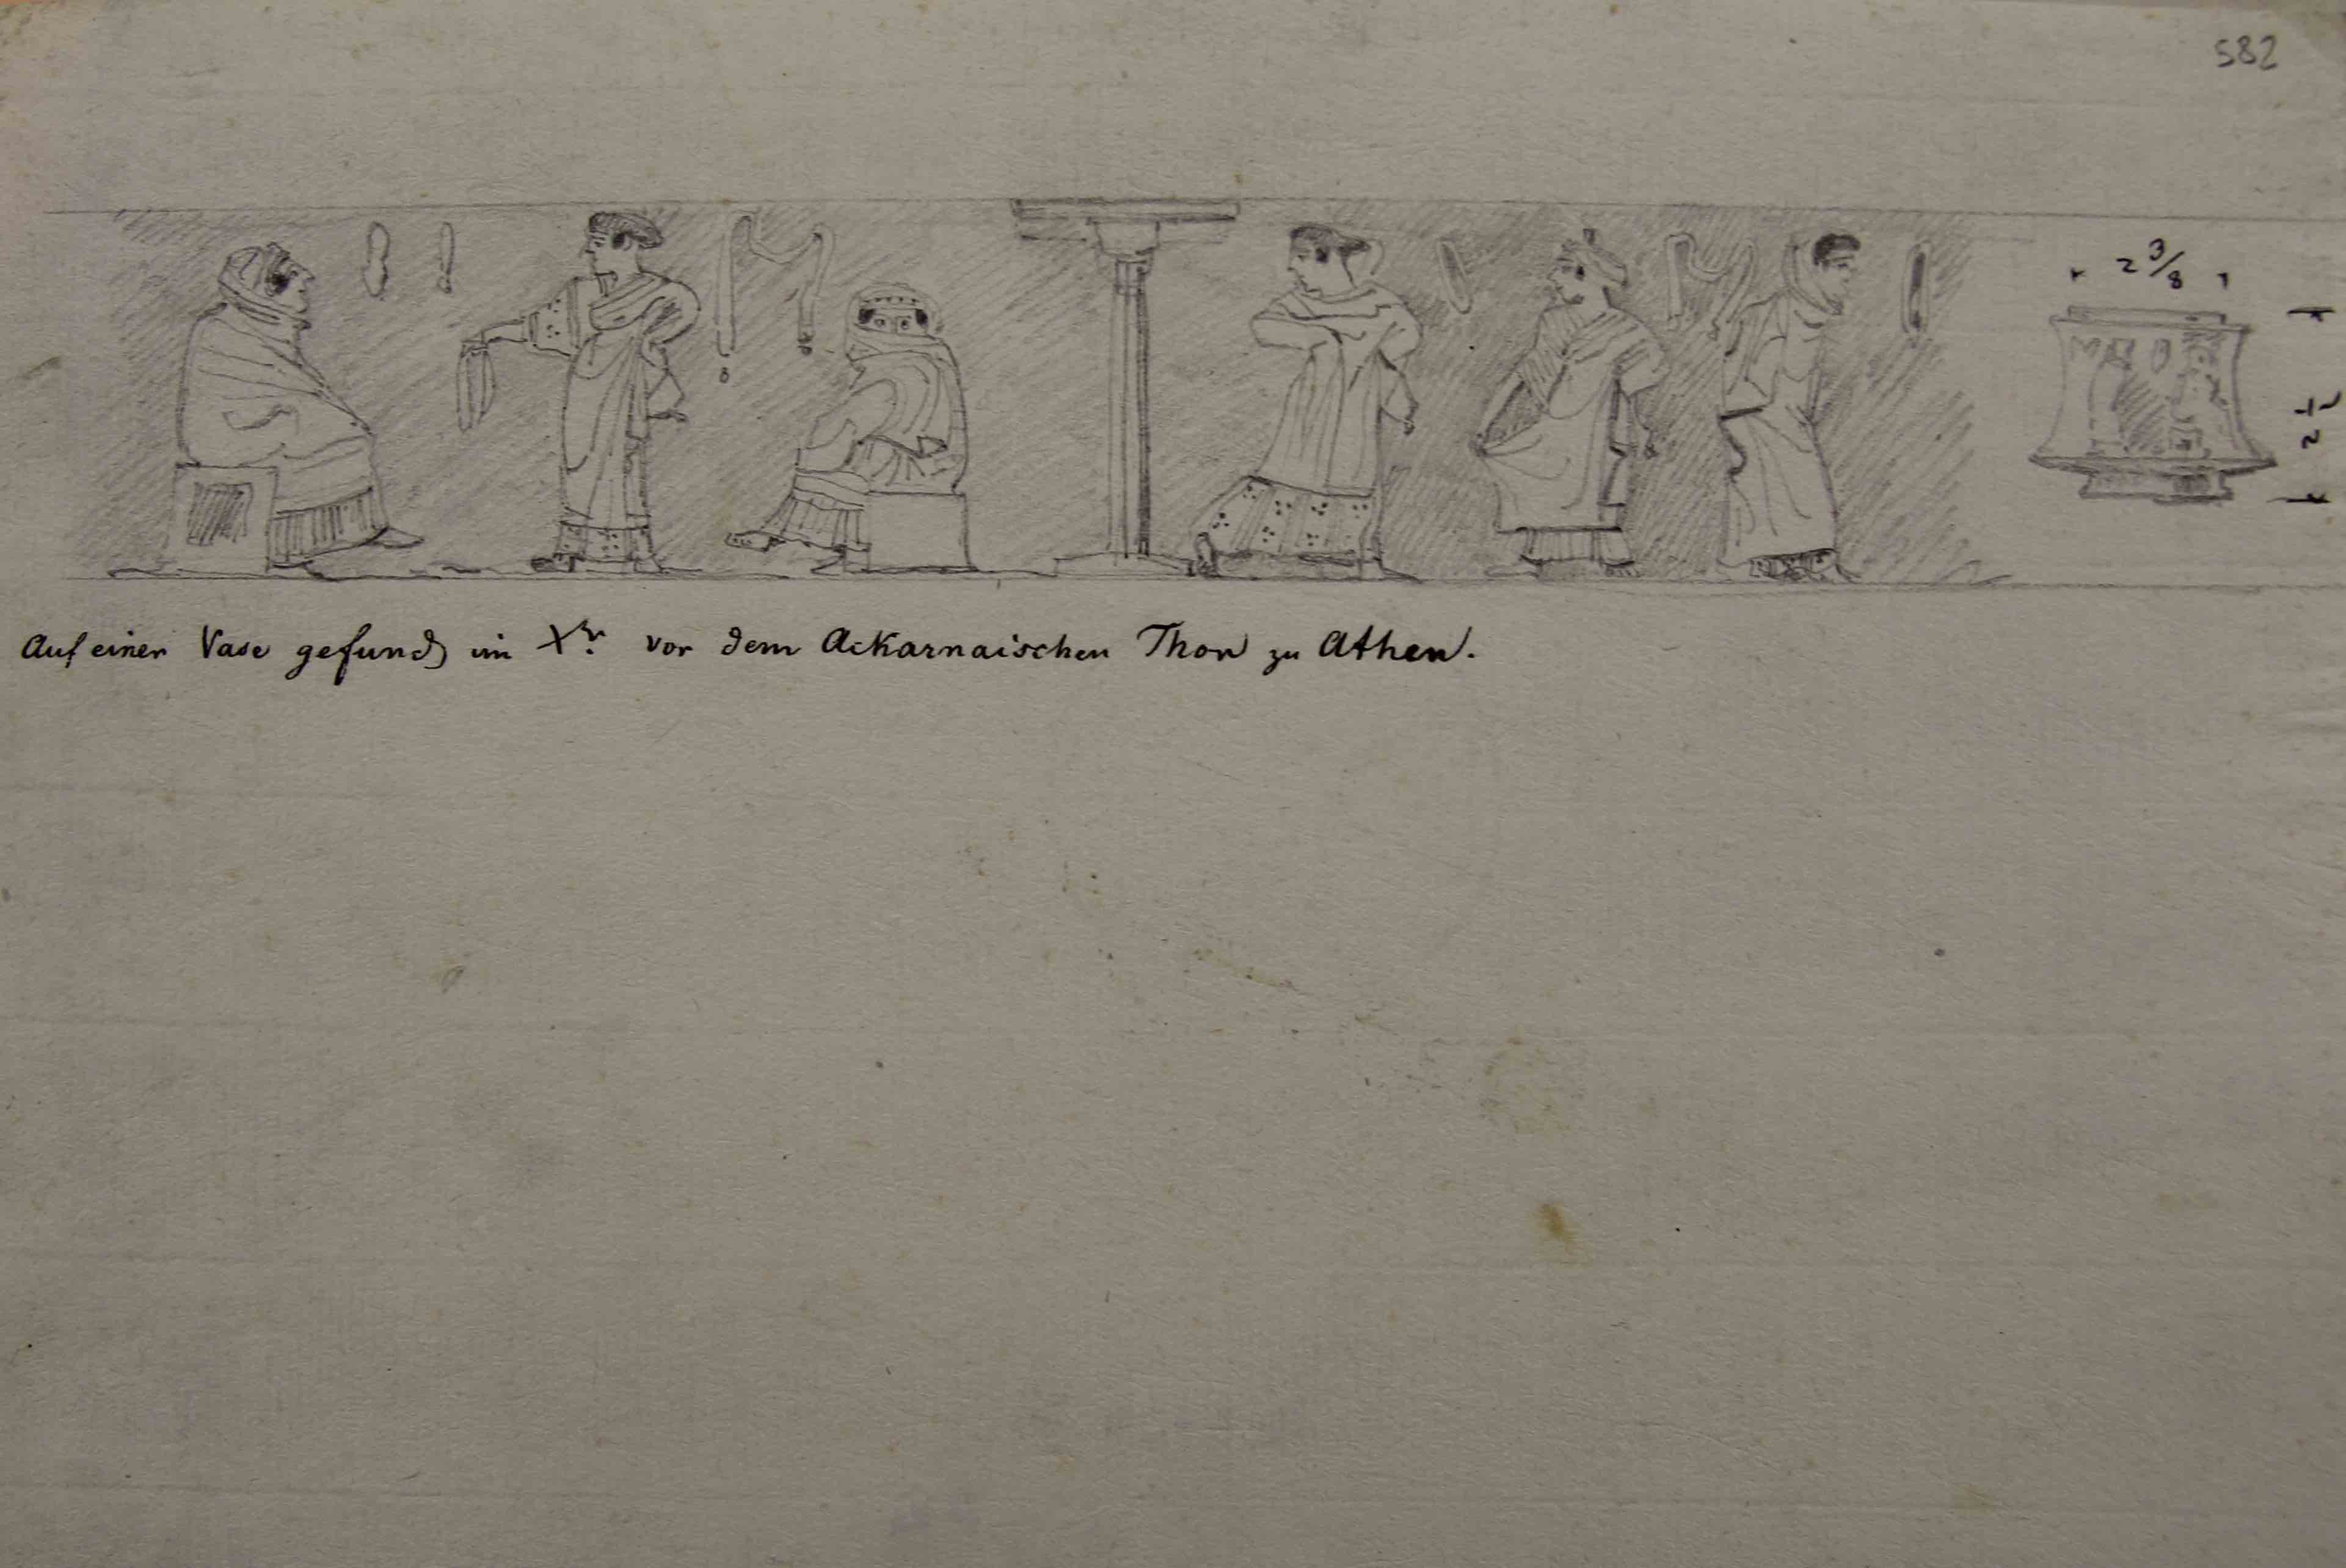 582
2 3/8
2 1/2
Auf einer Vase gefund im Xr. vor dem Ackarnaischen Thor zu Athen.